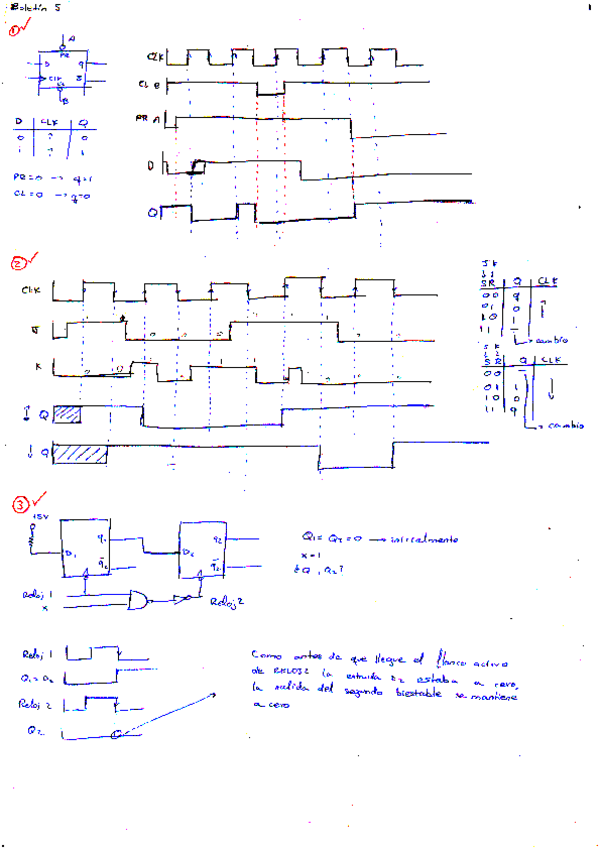 Boletín 5
1
A
PR
D q
CLK q
CL
B
D CLK Q
0 ↑ 0
1 ↑ 1
PR=0 → q=1
CL=0 → q=0
CLK
CL B
PR A
D
Q
2
CLK
J
K
↑ Q
↓ Q
J K
↓ ↓
SR Q CLK
00 q
01 0 ↑
10 1
11 –
→ cambio
J K
SR Q CLK
00 –
01 1 ↓
10 0
11 q
→ cambio
3
+5V
D1 q1
D2 q2
Reloj 1
x
Reloj 2
Q1=Q2=0 → inicialmente
x=1
¿Q1, Q2?
Reloj 1
Q1=D2
Reloj 2
Q2
Como antes de que llegue el flanco activo
de RELOJ2 la entrada D2 estaba a cero,
la salida del segundo biestable se mantiene
a cero